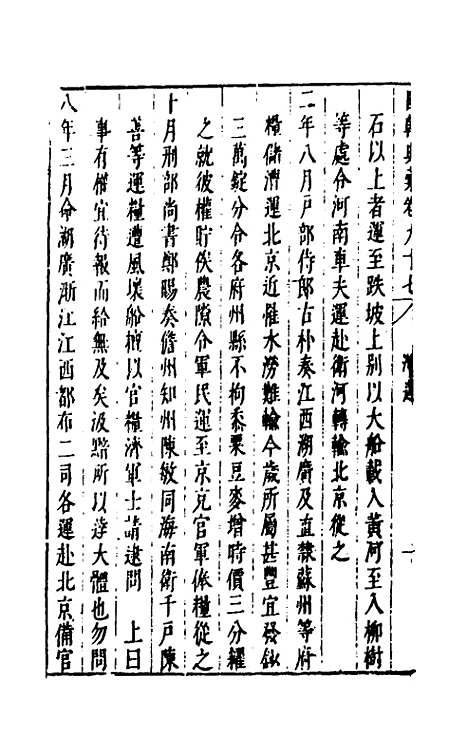 國朝典彙卷九十七 漕運
石以上者運至跌坡上別以大船載入黃河至入柳樹
等處令河南車夫運赴衛河轉輸北京從之
二年八月戶部侍郎古朴奏江西湖廣及直隸蘇州等府
糧儲漕運北京近罹水澇難輸今歲所屬甚豐宜發鈔
三萬錠分令各府州縣不拘黍粟豆麥增時價三分糴
之就彼權貯俟農隙令軍民運至京兌官軍俸糧從之
十月刑部尚書鄭賜奏儋州知州陳敏同海南衛千戶陳
善等運糧遭風壞船擅以官糧濟軍士請逮問 上曰
事有權宜待報而給無及矣汲黯所以達大體也勿問
八年三月命湖廣浙江江西都布二司各運赴北京備官